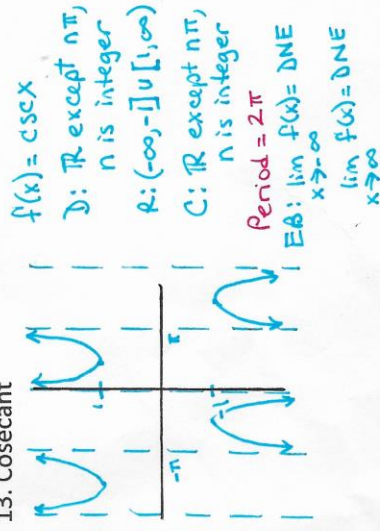 13. Cosecant
1
-1
-π
π
f(x) = cscx
D: ℝ except nπ,
n is integer
R: (-∞,-1]∪[1,∞)
C: ℝ except nπ,
n is integer
Period = 2π
EB: lim f(x) = DNE
x→-∞
lim f(x) = DNE
x→∞